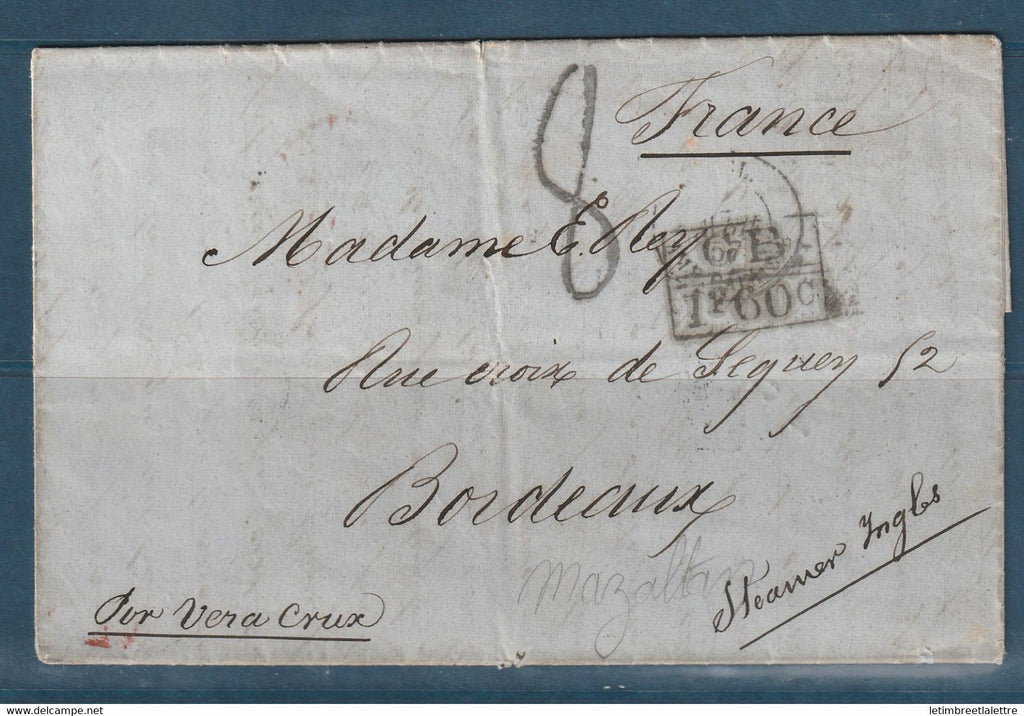 France
8
Madame E. Rey
GB
1F60C
Rue croix de Seguey 52
Bordeaux
Mazaltan
Steamer Ingles
Por Vera Crux
www.delcampe.net
letimbreetlalettre